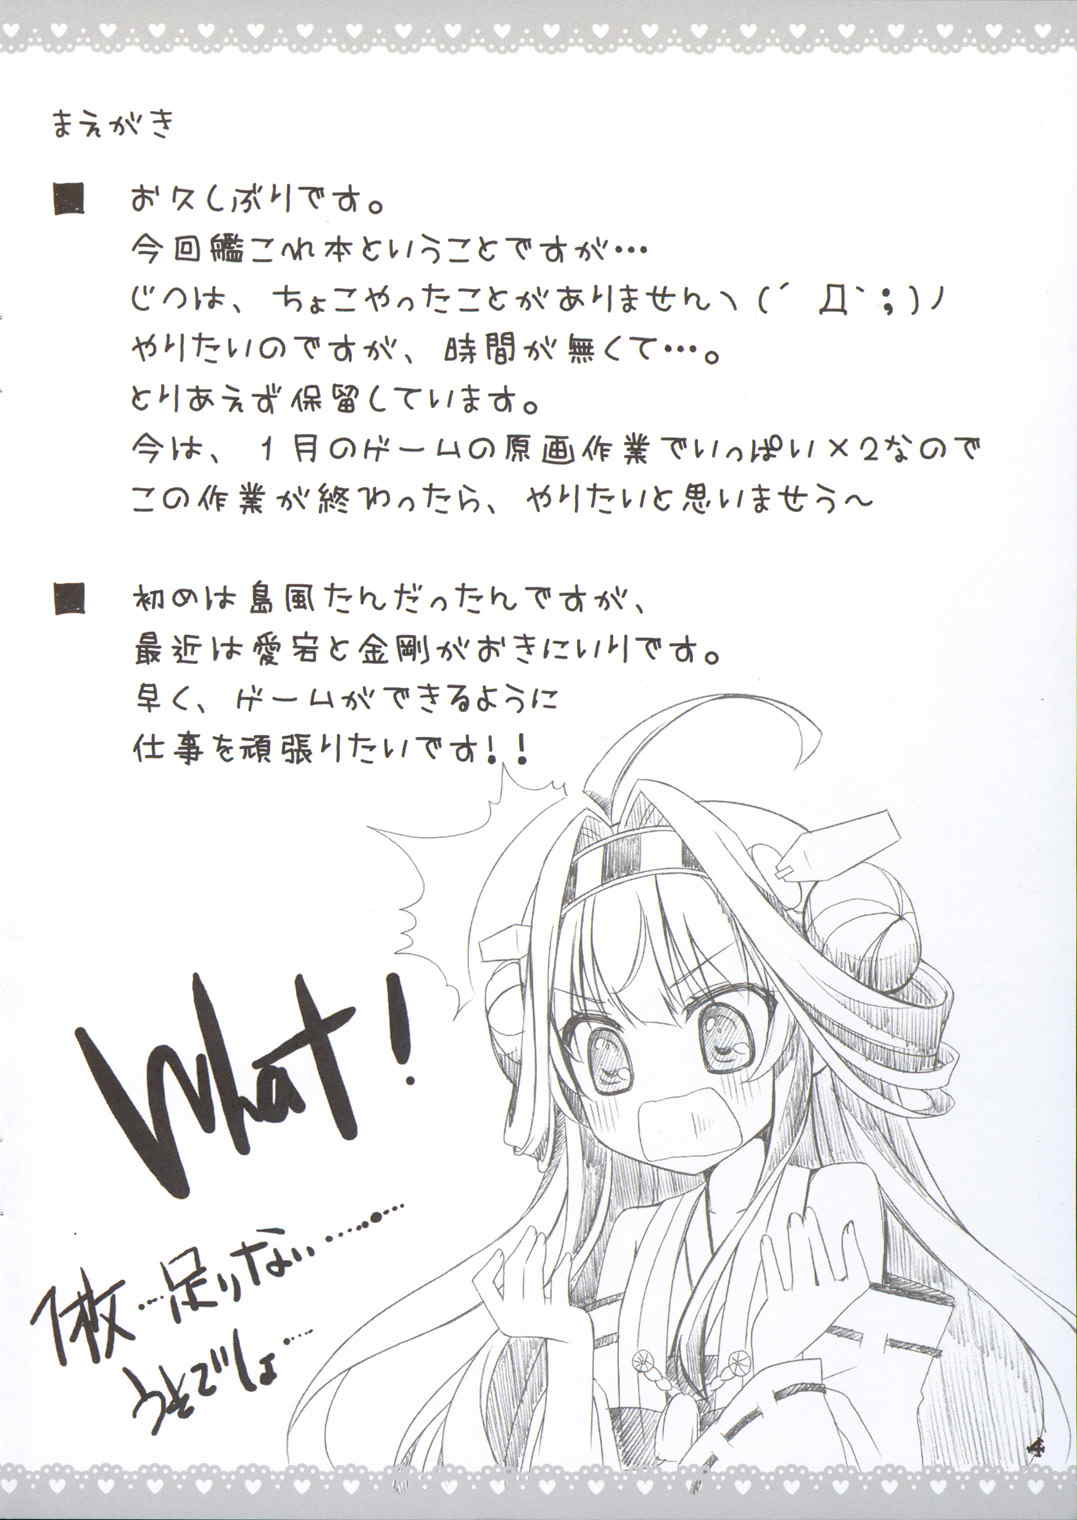 まえがき
■ お久しぶりです。
今回艦これ本ということですが…
じつは、ちょこやったことがありませんヽ(´Д｀;)ノ
やりたいのですが、時間が無くて…。
とりあえず保留しています。
今は、1月のゲームの原画作業でいっぱい×2なので
この作業が終わったら、やりたいと思いませう～
■ 初めは島風たんだったんですが、
最近は愛宕と金剛がおきにいりです。
早く、ゲームができるように
仕事を頑張りたいです!!
What!
1枚…足りない……
うそでしょ…
4